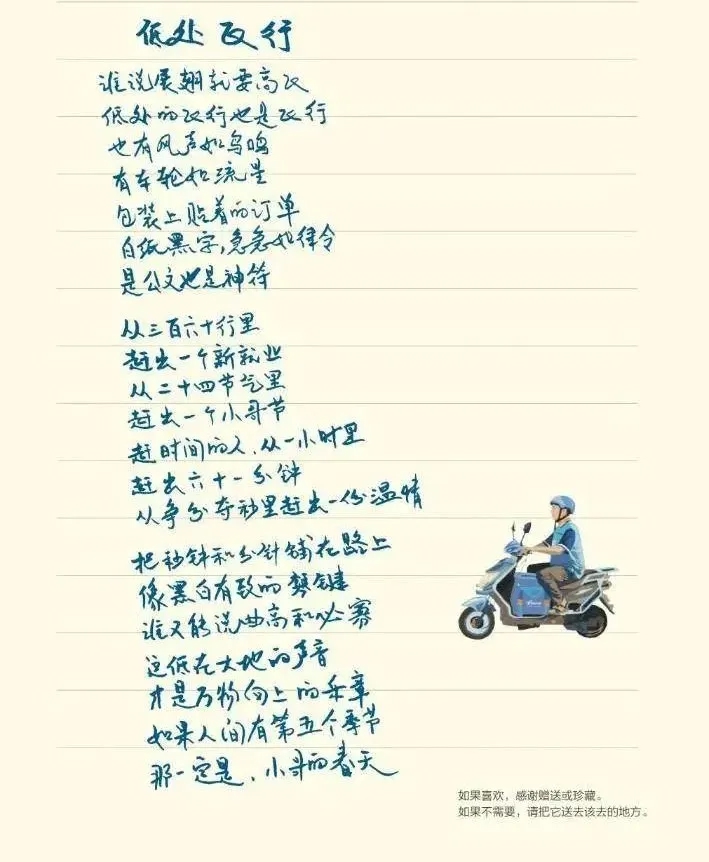 低处飞行
谁说展翅就要高飞
低处的飞行也是飞行
也有风声如鸟鸣
有车轮如流星
包装上贴着的订单
白纸黑字,急急如律令
是公文也是神符
从三百六十行里
赶出一个新就业
从二十四节气里
赶出一个小哥节
赶时间的人,从一小时里
赶出六十一分钟
从争分夺秒里赶出一份温情
把秒针和分针铺在路上
像黑白有致的琴键
谁又能说曲高和必寡
这低在大地的声音
才是万物向上的乐章
如果人间有第五个季节
那一定是,小哥的春天
如果喜欢，感谢赠送或珍藏。
如果不需要，请把它送去该去的地方。